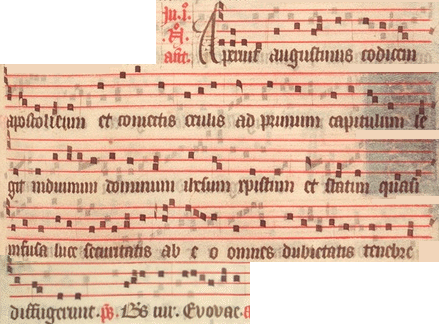 Aperuit augustinus codicem
apostolicum et coniectis oculis ad primum capitulum le
git induimini dominum ihesum xpistum et statim quasi
infusa luce securitatis ab eo omnes dubietatis tenebre
diffugerunt. ps. Evovae.